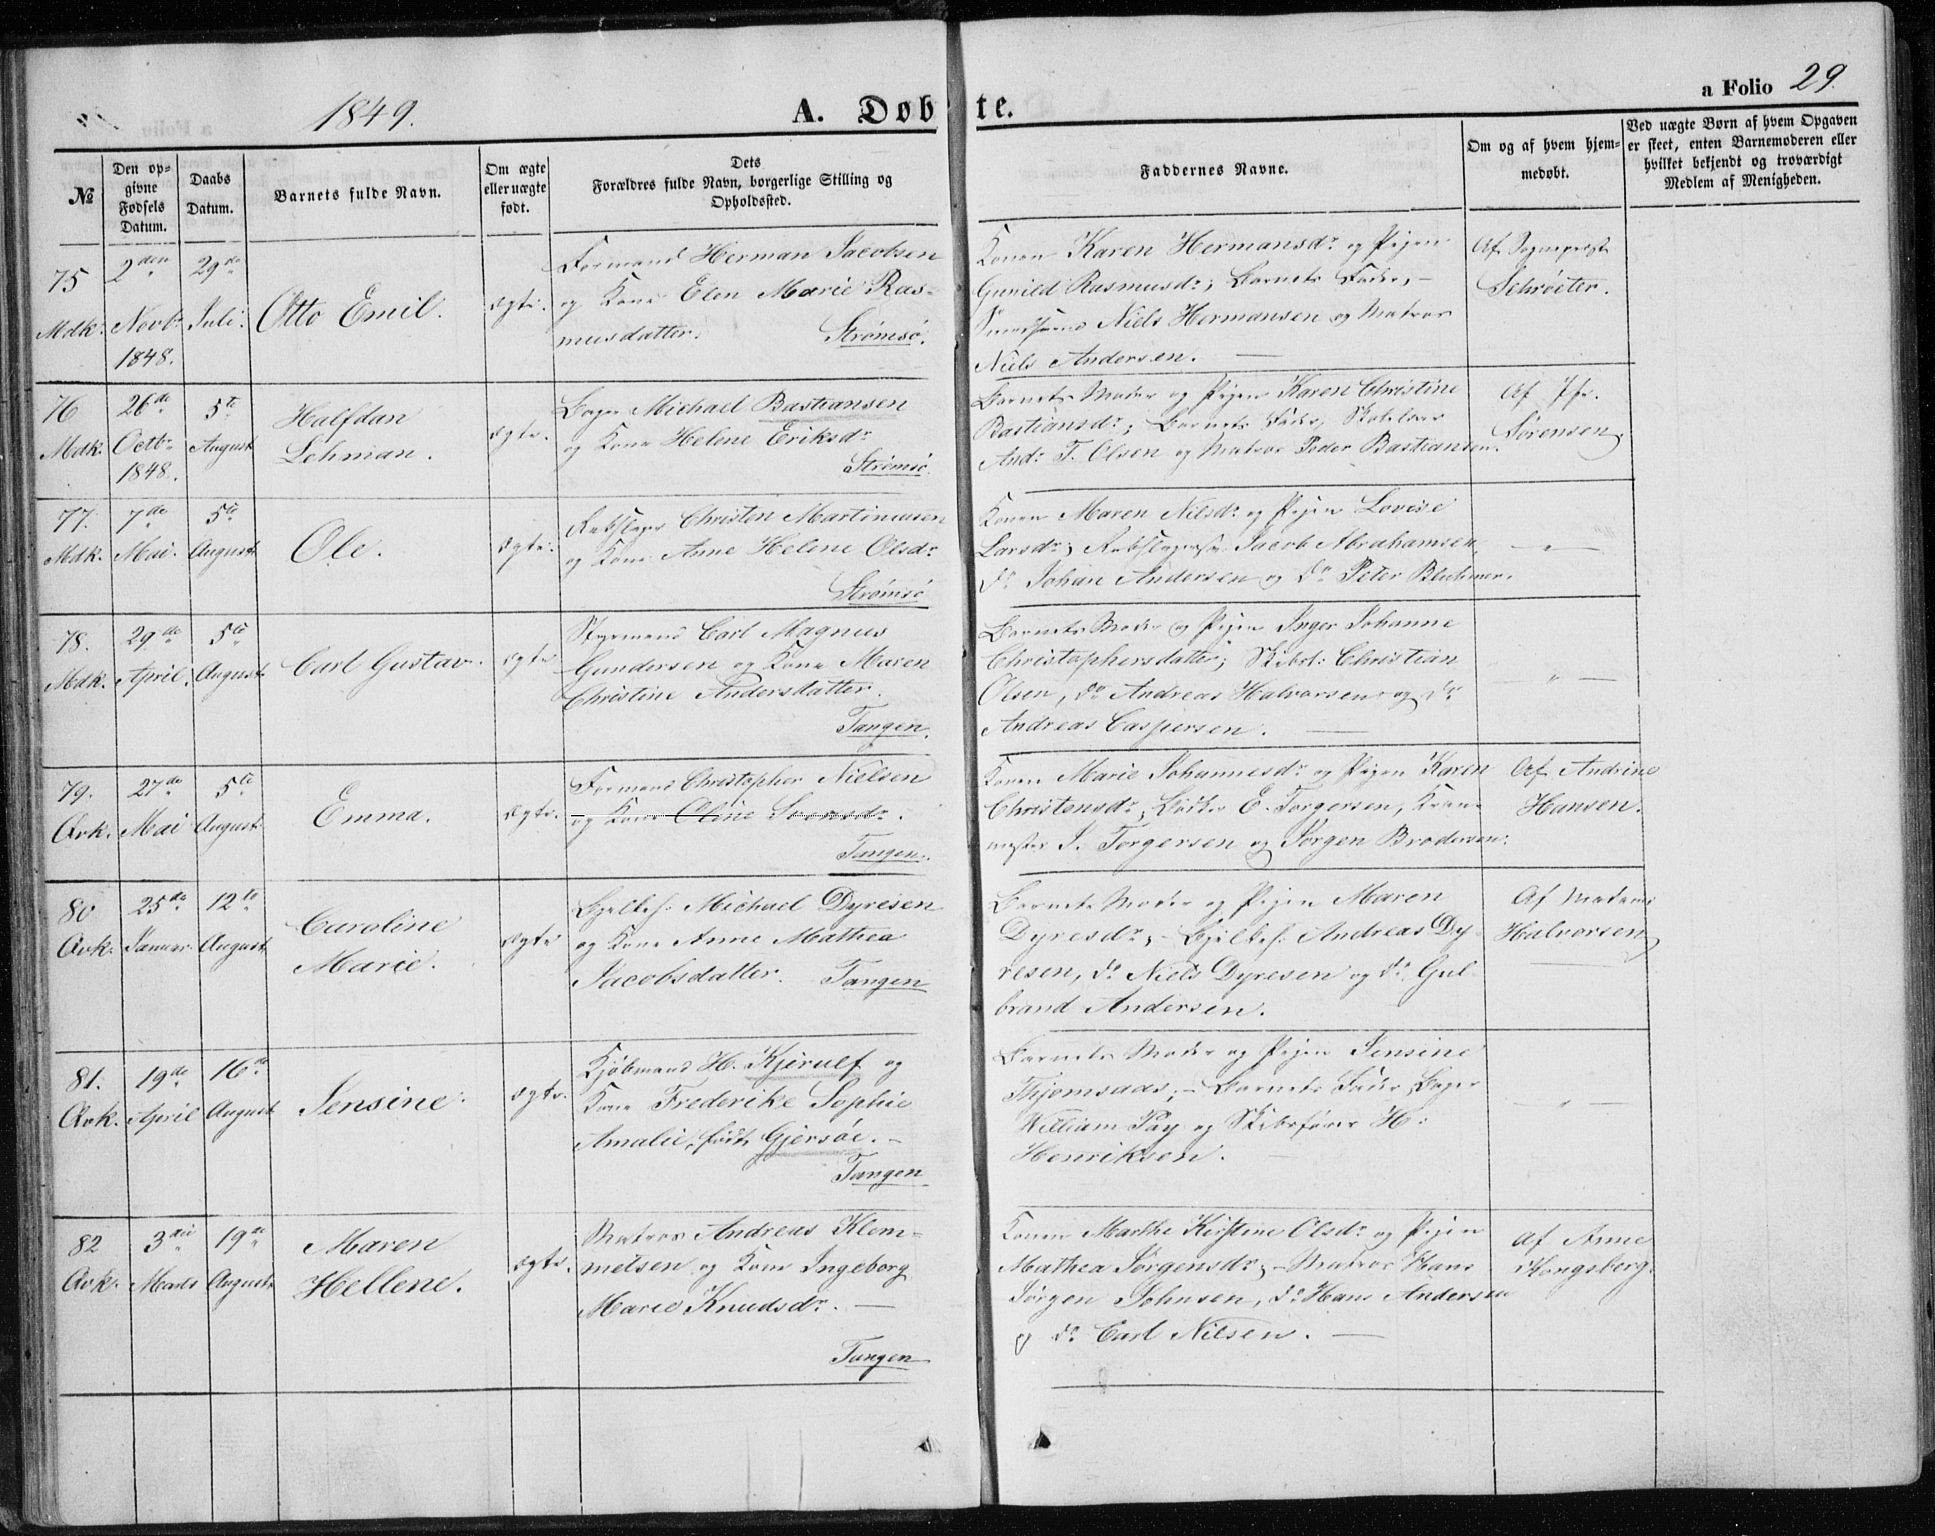 1849.
A. Døbte.
a Folio 29.
№
Den opgivne Fødsels Datum.
Daabs Datum.
Barnets fulde Navn.
Om ægte eller uægte født.
Dets Forældres fulde Navn, borgerlige Stilling og Opholdssted.
Faddernes Navne.
Om og af hvem hjemmedøbt.
Ved uægte Børn af hvem Opgaven er skeet, enten Barnemoderen eller hvilket bekjendt og troværdigt Medlem af Menigheden.
75
Mdk.
2den
Novbr
1848.
29de
Juli.
Otto Emil.
ægte.
Formand Herman Jacobsen
og Kone Elen Marie Ras-
musdatter.
Strømsø.
Konen Karen Hermansdr og Pigen
Gunild Rasmusdr; Barnets Fader, -
Niels Hermansen og Matros
Niels Andersen. —
Af Sognepræst
Schrøeter.
76
Mdk.
26de
Octbr
1848.
5te
August
Halfdan
Lehman.
ægte.
Bager Michael Bastiansen
og Kone Helene Eriksdr
Strømsø.
Barnets Moder og Pigen Karen Christine
Bastiansdr; Barnets Fader,
Andr T. Olsen og Matros Peder Bastiansen.
Af
Sørensen.
77.
Mdk.
7de
Mai.
5te
August
Ole.
ægte.
Rebslager Christen Martinusen
og Kone Anne Helene Olsdr
Strømsø
Konen Maren Nilsdr og Pigen Lovise
Larsdr; Jacob Abrahamsen,
do Johan Andersen og do Peter
— " —
78.
Mdk.
29de
April.
5te
August
Carl Gustav.
ægte
Styrmand Carl Magnus
Gundersen og Kone Maren
Christine Andersdatter.
Tangen.
Barnets Moder og Pigen Inger Johanne
Christophersdatter; Christian
Olsen, do Andreas Halvorsen og do
Andreas Caspersen. —
— " —
79.
Ark.
27de
Mai
5te
August
Emma.
ægte.
Formand Christopher Nielsen
og Kone Oline
Tangen.
Konen Marie Johannesdr og Pigen Karen
Christensdr; E. Torgersen,
J. Torgersen og Jørgen Brodersen.
Af Andrine
Hansen.
80
Ark.
25de
Januar
12te
August
Caroline
Marie.
ægte
Michael Dyresen
og Kone Anne Mathea
Jacobsdatter. Tangen
Barnets Moder og Pigen Maren
Dyresdr; - Andreas Dy-
resen, do Niels Dyresen og do Gul-
brand Andersen.
Af Madame
Halvorsen
81.
Ark.
19de
April
16de
August
Jensine.
ægte.
Kjøbmand H. Kjerulf og
Kone Frederike Sophie
Amalie, født Gjersøe. -
Tangen
Barnets Moder og Pigen Jensine
Thjomsaas; - Barnets Fader, Bager
William Pay og Skibsfører H:
Henriksen.
— " —
82
Ark.
3die
Marts
19de
August
Maren
Hellene.
ægte.
Matros Andreas Klem-
metsen og Kone Ingeborg
Marie Knudsdr. —
Tangen
Konen Marthe Kirstine Olsdr og Pigen
Mathea Jørgensdr; - Matros Hans
Jørgen Johnsen, do Hans Andersen
og do Carl Nilsen. —
Af Anne
Kongsberg.